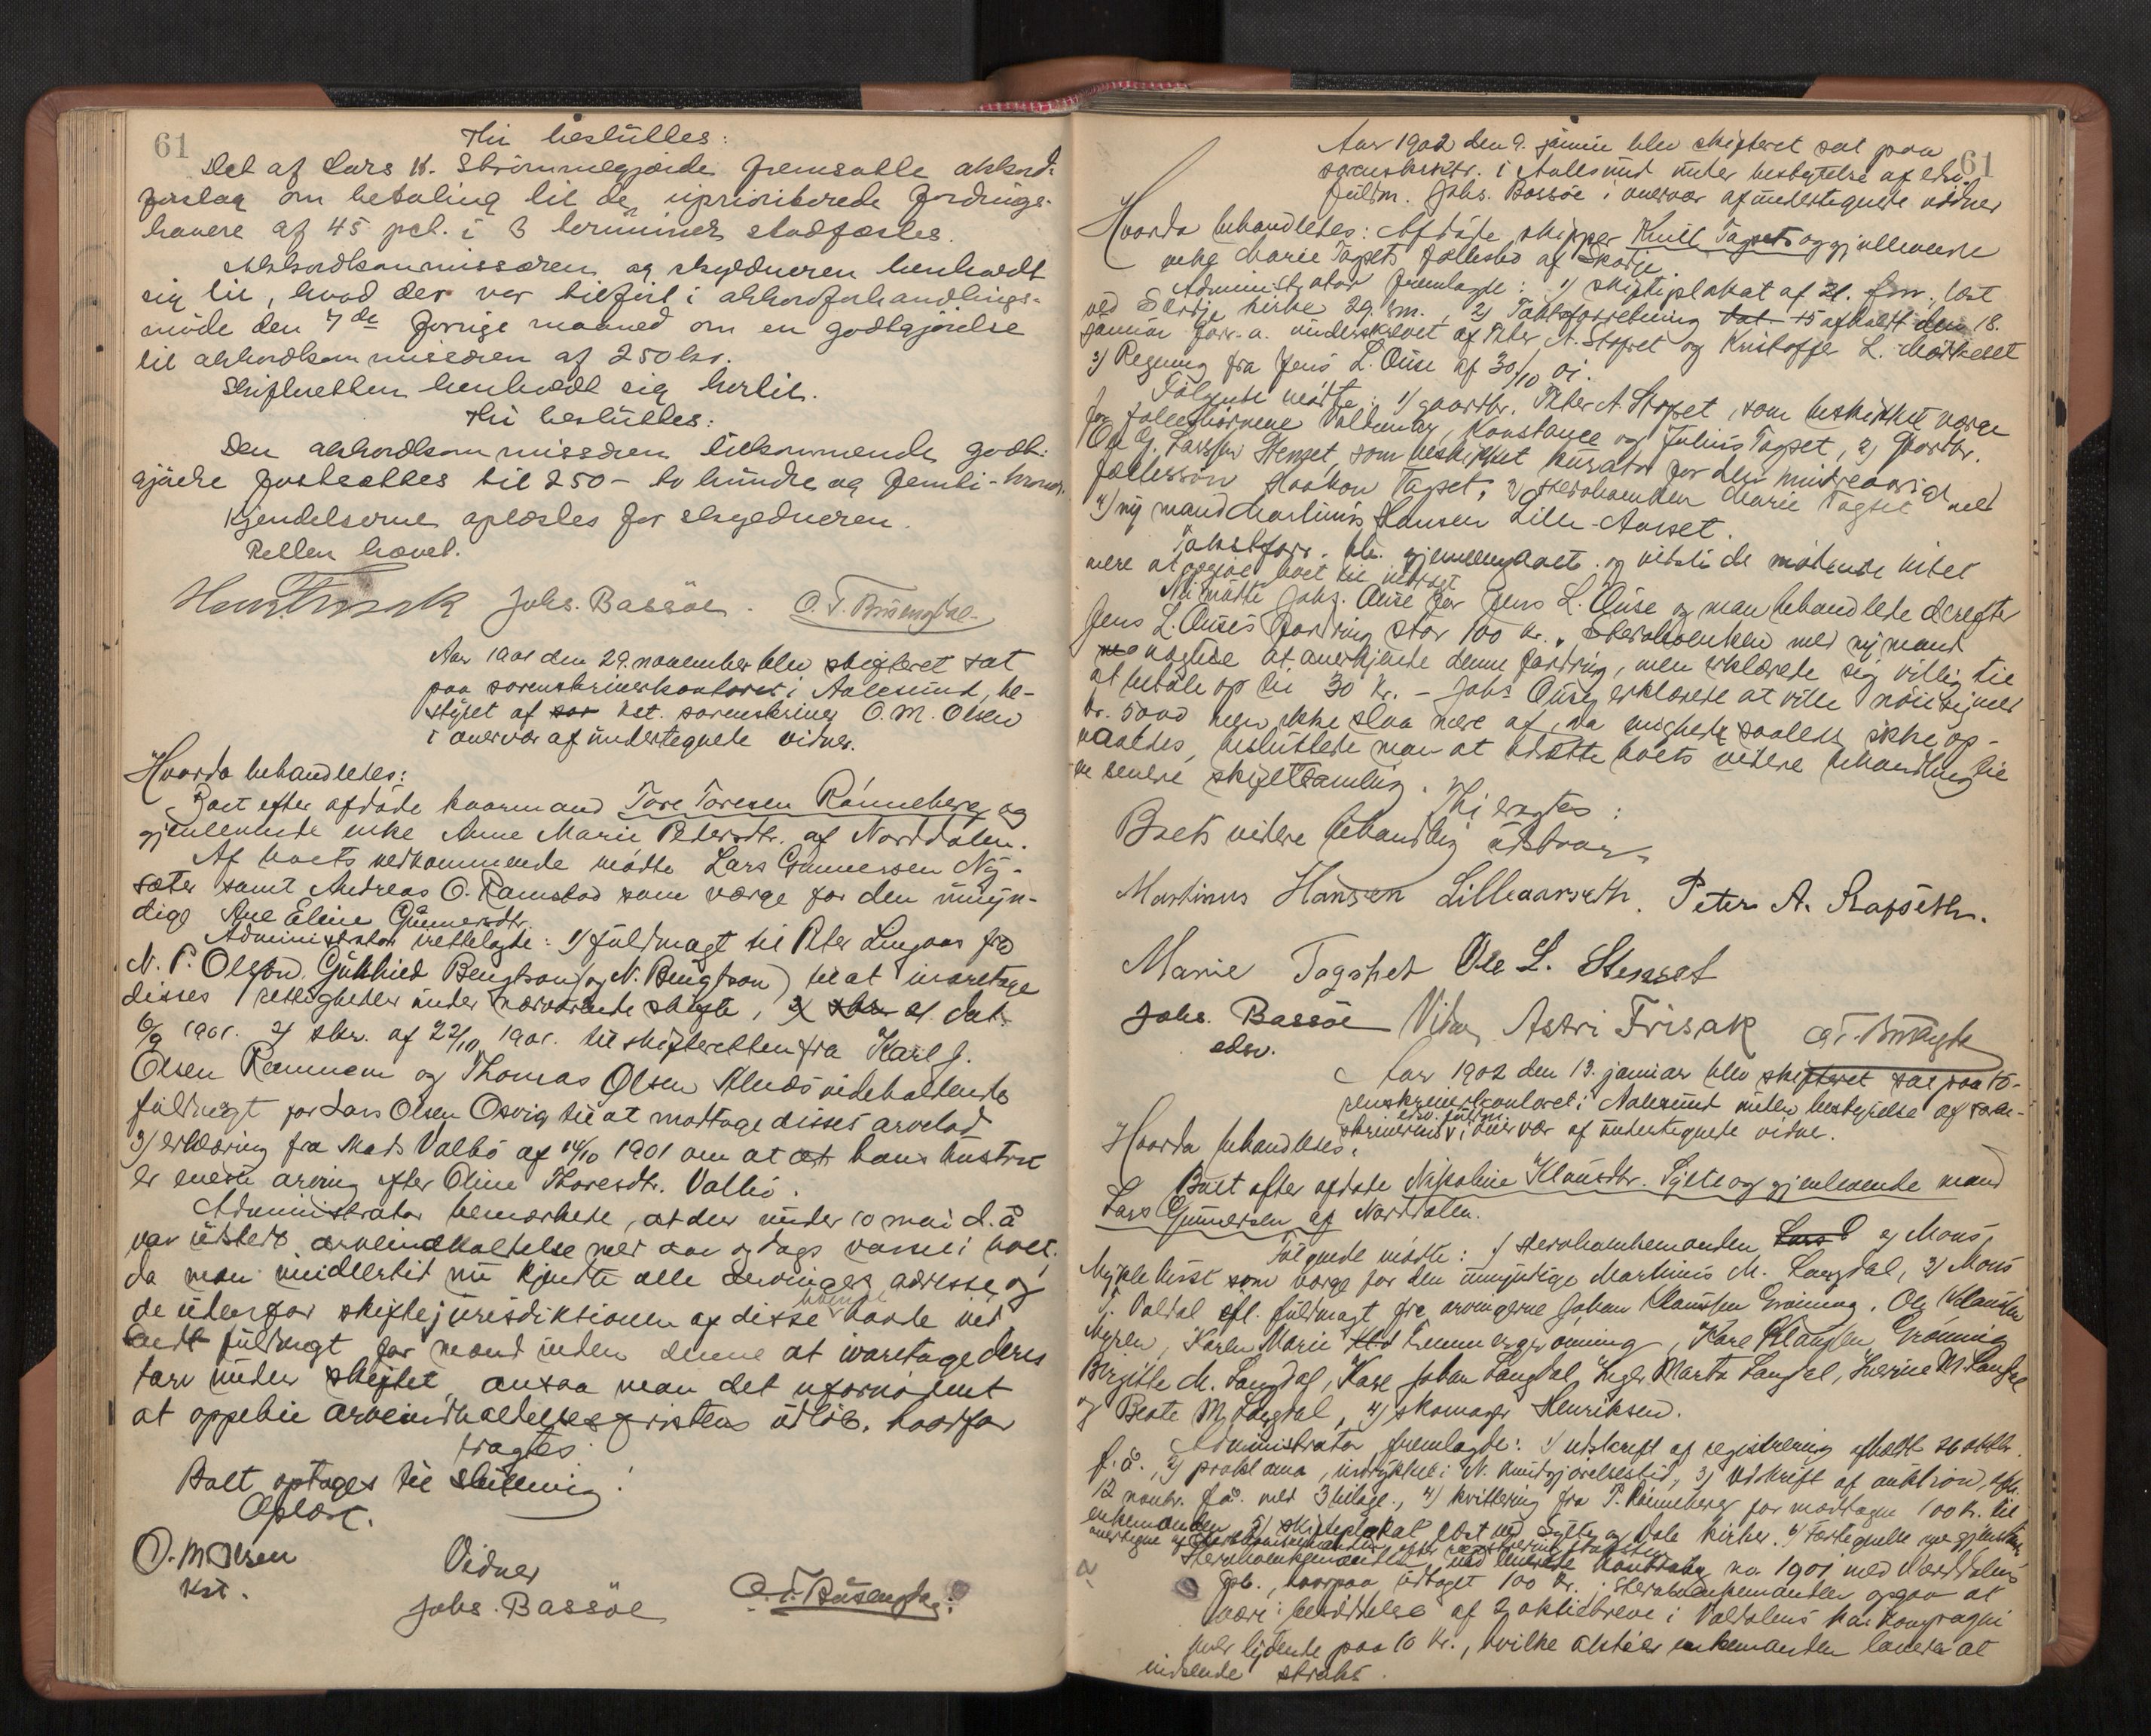 61
Thi besluttes:
Det af Lars K. Strømmegjærde fremsatte akkord-
forslag om betaling til de upriioriterede fordrings-
havere af 45 pct. i 3 terminer stadfæstes.
Akkordkommissæren og skyldneren henholdt
sig til, hvad der var tilført i akkordforhandlings-
møde den 7de forrige maaned om en godtgjørelse
til akkordkommissæren af 250 kr.
Skifteretten henholdt sig hertil.
Thi besluttes:
Den akkordkommissæren tilkommende godt-
gjørelse fastsættes til 250 – to hundre og femti – kroner.
Kjendelserne oplæstes for skyldneren.
Retten hævet.
Johs. Bassøe. O. T. Bisengdal
Aar 1901 den 29. november blev skifteret sat
paa sorenskriverkontoret i Aalesund, be-
styret af sor kst. sorenskriver O. M. Olsen
i overvær af undertegnede vidner.
Hvorda behandledes:
Boet efter afdøde kaarmand Tore Toresen Rønneberg og
gjenlevende enke Anne Marie Petersdtr. af Norddalen.
Af boets vedkommende mødte Lars Gunnersen Ny-
sæter samt Andreas O. Ramstad som værge for den umyn-
dige Ane Eline Gunnersdtr.
Administrator irettelagte: 1) fuldmagt til Peter Lingaas fra
N. P. Olsson, Gunhild Bengtson og N. Bengtson) til at ivaretage
disses rettigheder under nærværende skifte, 2) skr. af dat.
6/9 1901. 2) skr. af 22/10 1901 til skifteretten fra Karl J.
Olsen Remmem og Thomas Olsen Alnes indeholdende
fuldmagt for Lars Olsen Osvig til at modtage disses arvelod
3) erklæring fra Mads Valbø af 14/10 1901 om at at hans hustru
er eneste arving efter Oline Thoresdtr. Valbø.
Administrator bemærkede, at der under 10 mai d. å
var udstedt arveindkaldelse med aar og dags varsel i boet,
da man imidlertid nu kjendte alle arvinges adresse og
de udenfor skiftejurisdiktionen af disse boende havde ind
sendt fuldmagt for mand inden denne at ivaretage deres
tarv under skiftet, ansaa man det ufornødent
at oppebie arveindkaldelsesfristens udløb, hvorfor
eragtes:
Boet optages til slutning!
Oplæst.
O. M Olsen
Kst.
Vidner
Johs. Bassøe
O. T. Bisengdal
61
Aar 1902 den 9. januar blev skifteret sat paa
sorenskrktr. i Aalesund under bestyrelse af edsv.
fuldm. Johs. Bassøe i overvær af undertegnede vidner
Hvorda behandledes: Afdøde skipper Knut Tagsets og gjenlevende
enke Marie Tagsets fællesbo af Skodje.
Administrator fremlagte: 1) skifteplakat af 21. f.m., læst
ved Skodje kirke 29. s.m., 2) Takstforretning dat. 15 afholdt den 18.
januar forr. a. underskrevet af Peter A. Stopset og Kristoffer L. Mørkeset
3) Regning fra Jens L. Ouse af 30/10 01.
Følgende mødte: 1) gaardbr. Peter A. Stopset, som beskikket værge
for fællesbørnene Valdemar, Konstance og Julius Tagset, 2) Gaardbr.
Ole G. Larssen Stenset, som beskikket kurator for den mindreaarige
fællessøn Haakon Tagset, 3) Stervboenken Marie Tagset med
4) ny mand Martinus Hansen Lille-Aarset.
Takstforr. blev gjennemgaaet og vedtoges de mødende intet
mere at opgive boet til indtægt.
Nu mødte Johs. Ouse for Jens L. Ouse og man behandlede derefter
Jens L. Ouses fordring stor 100 kr. Stervboenken med ny mand
nægtede at anerkjende denne fordring, men erklærede sig villig til
at betale op til 30 kr. – Johs Ouse erklærede at ville nøie sig med
kr. 50,00 men ikke slaa mere af, da enighed saaledes ikke op-
naaedes, besluttede man at udsætte boets videre behandling til
en senere skiftesamling. Thi eragtes:
Boets videre behandling udstaar.
Martinus Hansen Lilleaarseth. Peter A. Stopseth.
Marie Tagset Ole L. Stenset
Johs. Bassøe Vidn. Astri Frisak O. T. Bisengdal
edsv.
Aar 1902 den 13. januar blev skifteret sat paa so-
renskriverkontoret i Aalesund under bestyrelse af soren-
skriverens edsv. fuldm. i overvær af undertegnede vidner.
Hvorda behandledes:
Boet efter afdøde Nikoline Klausdtr. Sylte og gjenlevende mand
Lars Gunnersen af Norddalen.
Følgende mødte: 1) Stervboenkemanden, 2) Mons
Myklebust som værge for den umyndige Martinus M. Langdal, 3) Mons
T. Valdal efl. fuldmagt fra arvingerne Johan Klaussen Grønning, Ole Klaussen
Myren, Karen Marie Grønning, Kare Klaussen Grønning
Birgitte M. Langdal, Kare Johan Langdal, Inger Marta Langdal, Severine M. Langdal
og Beate M. Langdal, 4) skomager Henriksen.
Administrator fremlagte: 1) udskrift af registrering afholdt 26 oktbr.
f. å., 2) proklama, indrykket i N. Kundgjørelsestid., 3) Udskrift af auktion, afh.
12 novbr. f. å. med 3 bilage., 4) kvittering fra P. Rønneberg for modtagne 100 kr. til
enkemanden, 5) skifteplakat læst ved Sylte og Dale kirker. 6) Fortegnelse
Stervboenkemanden no. 1901 med Norddalens
Spb., hvorpaa udtaget 100 kr. Stervboenkemanden opgav at
være i besiddelse af 2 aktiebreve i Valdalens
hver lydende paa 10 kr., hvilke aktier enkemanden lovede at
indsende straks.